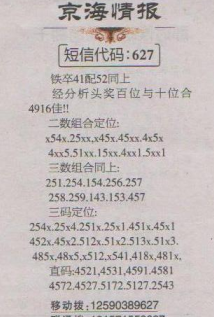 京海情报
短信代码:627
铁卒41配52同上
经分析头奖百位与十位合
4916佳!!
二数组合定位:
x54x.25xx,x45x.45xx.4x5x
4xx5.51xx.15xx.4xx1.5xx1
三数组合同上:
251.254.154.256.257
258.259.143.153.457
三码定位:
254x.25x4.251x.25x1.451x.45x1
452x.45x2.512x.51x2.513x.51x3.
485x,48x5,x512,x541,418x,481x,
直码:4521,4531,4591.4581
4572.4527.5172.5127.2543
移动拨:12590389627